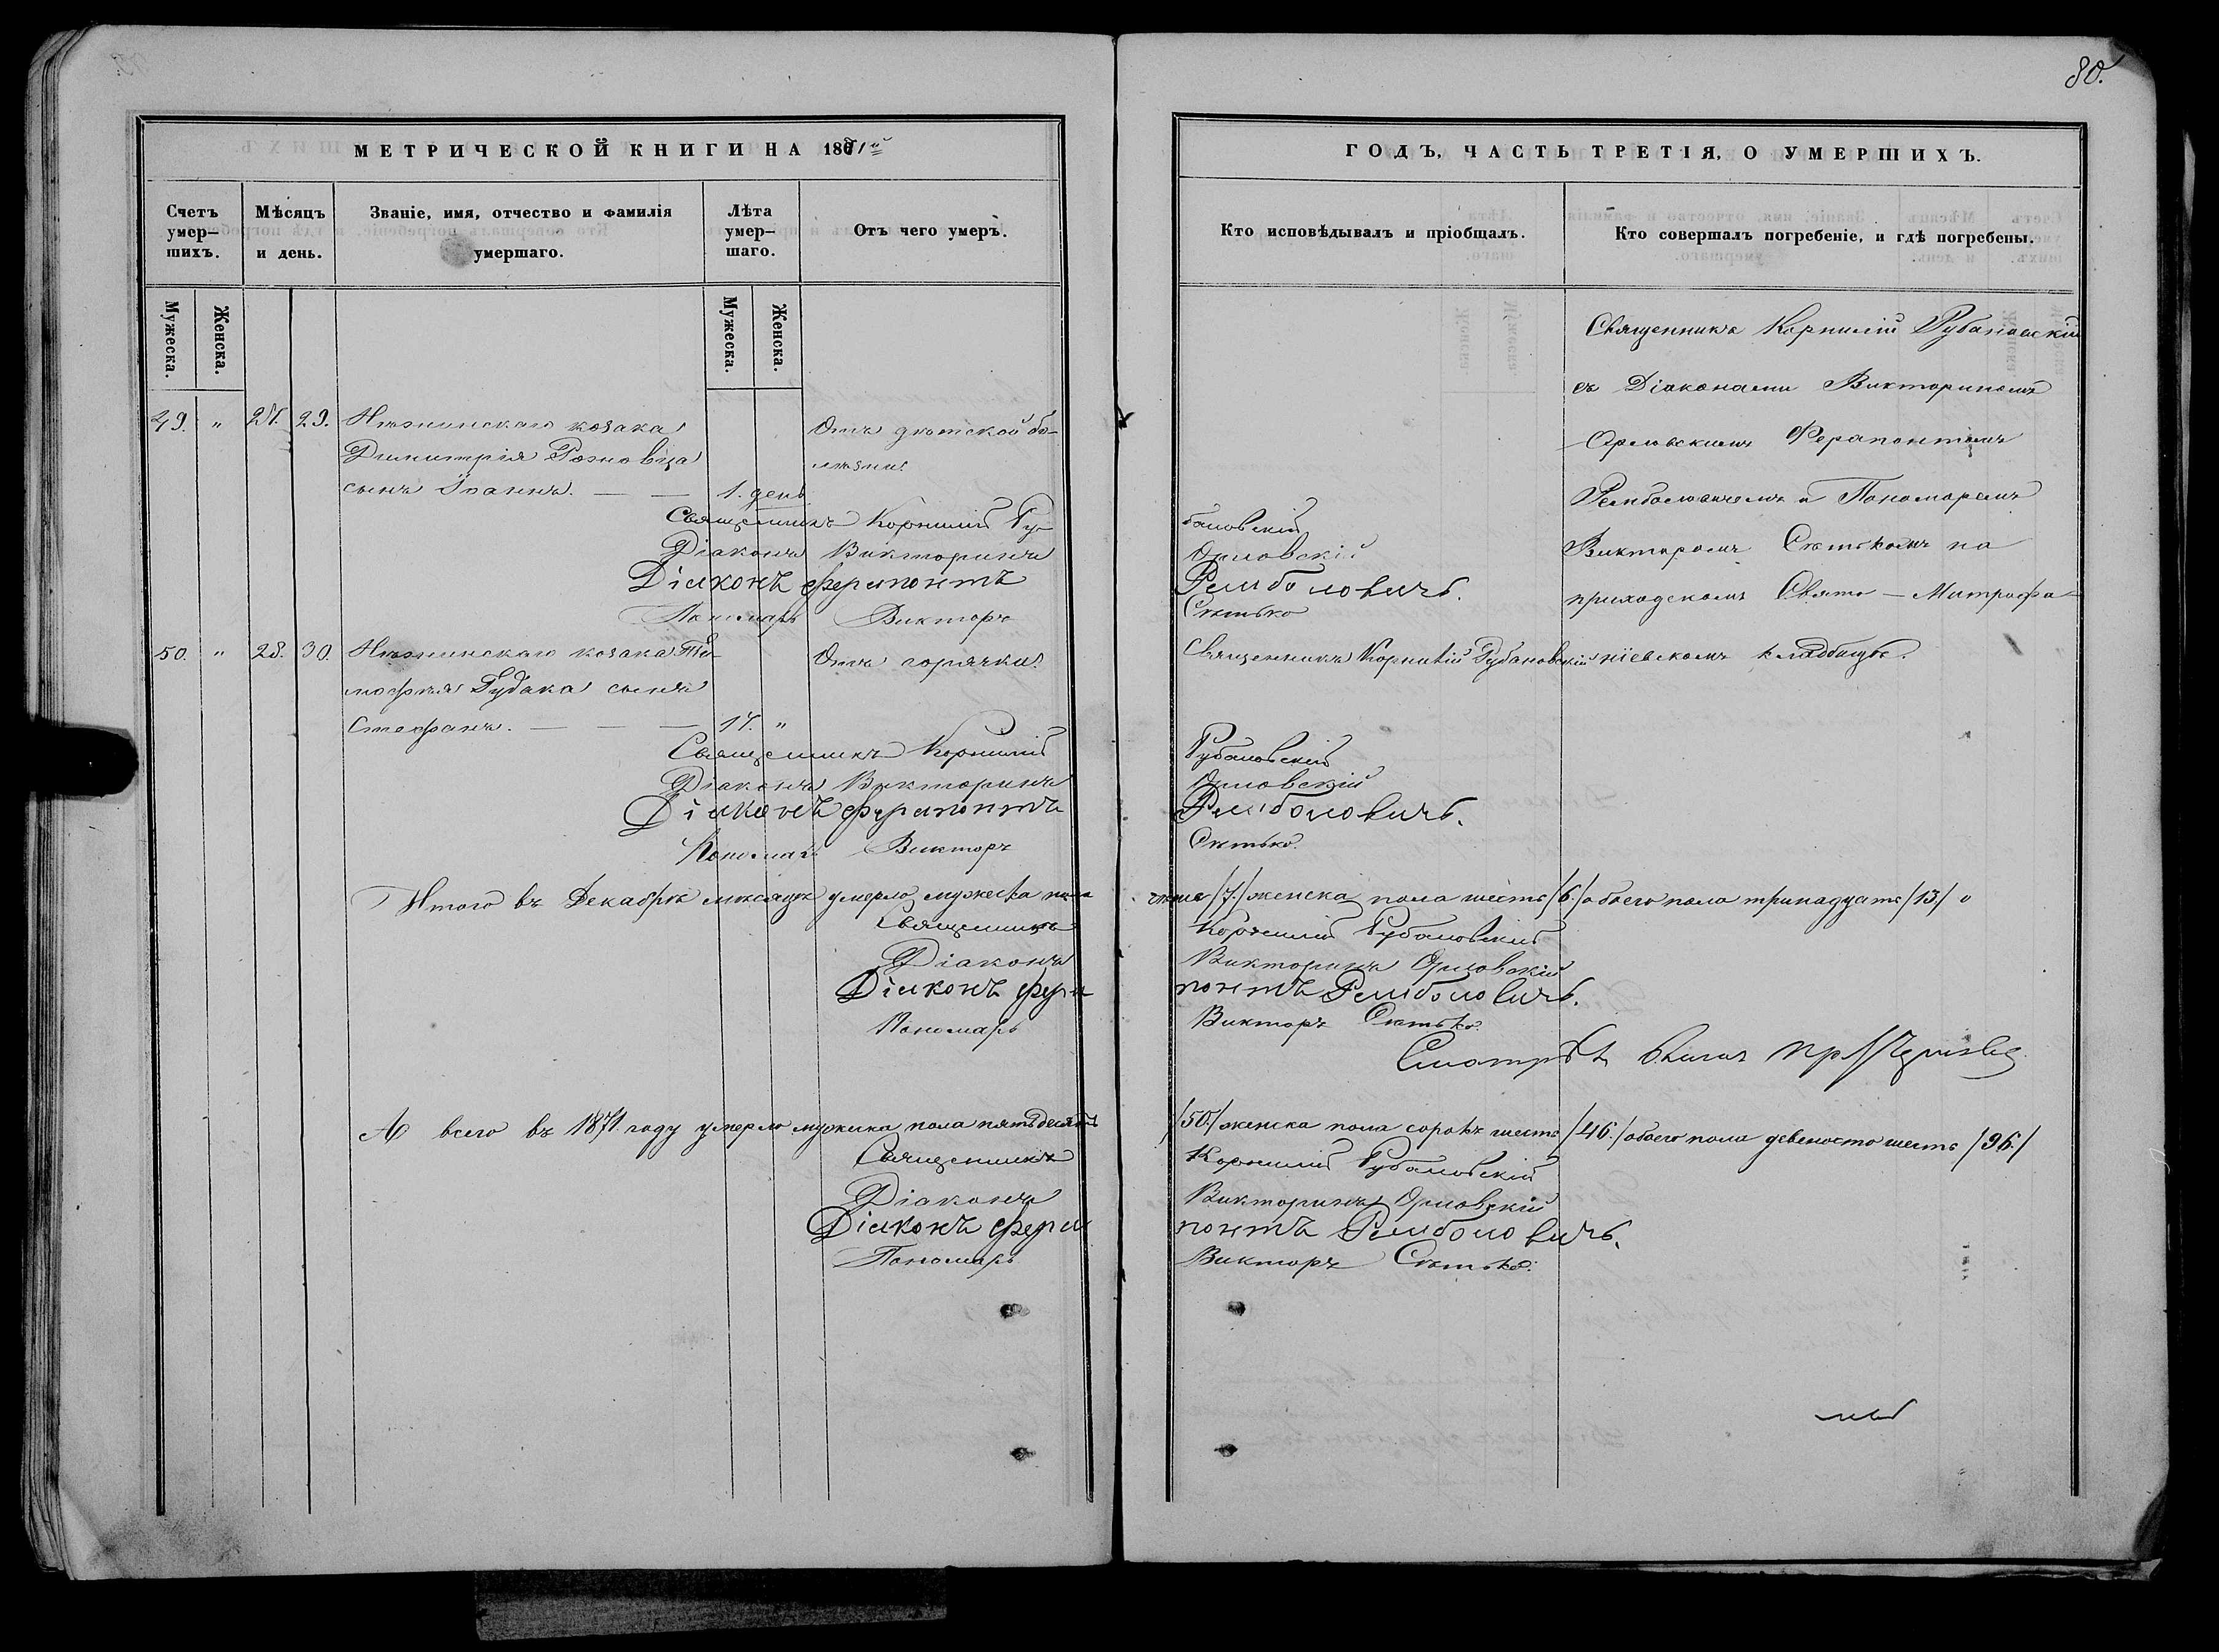 80.
МЕТРИЧЕСКОЙ КНИГИ НА 1871й
ГОДЪ, ЧАСТЬ ТРЕТІЯ, О УМЕРШИХЪ.
Счетъ умер-шихъ.
Мѣсяцъ и день.
Званіе, имя, отчество и фамилія умершаго.
Лѣта умер-шаго.
Отъ чего умеръ.
Кто исповѣдывалъ и пріобщалъ.
Кто совершалъ погребеніе, и гдѣ погребены.
Мужеска.
Женска.
Мужеска.
Женска.
49. " 27. 29. Нѣжинскаго козака
Димитрія
сынъ Іоаннъ. — — 1. день
Отъ дѣтской бо-
лѣзни.
Священникъ Корнилій Ру-
бановскій
Діаконъ Викторинъ
Орловскій
Діаконъ Ферапонтъ
Ремболовичъ.
Пономарь Викторъ
Сѣтько
Священникъ Корнилій Рубановскій
съ Діаконами Викториномъ
Орловскимъ Ферапонтомъ
Ремболовичемъ и Пономаремъ
Викторомъ Сѣтькомъ на
приходскомъ Свято-Митрофа-
ніевскомъ кладбищѣ.
50. " 28. 30. Нѣжинскаго козака Ти-
мофея Гудака сынъ
Стефанъ. — — — 17. "
Отъ горячки.
Священникъ Корнилій Рубановскій
Священникъ Корнилій
Рубановскій
Діаконъ Викторинъ
Орловскій
Діаконъ Ферапонтъ
Ремболовичъ.
Пономарь Викторъ
Сѣтько.
Итого въ Декабрѣ мѣсяцѣ умерло мужеска пола
семь /7./ женска пола шесть /6./ обоего пола тринадцать /13./
Священникъ
Корнилій Рубановскій
Діаконъ
Викторинъ Орловскій
Діаконъ Фера
понтъ Ремболовичъ.
Пономарь
Викторъ Сѣтько.
А всего въ 1871 году умерло мужеска пола пятьдесятъ
/50./ женска пола сорокъ шесть /46./ обоего пола девяносто шесть /96./
Священникъ
Корнилій Рубановскій
Діаконъ
Викторинъ Орловскій
Діаконъ Фера
понтъ Ремболовичъ.
Пономарь
Викторъ Сѣтько.